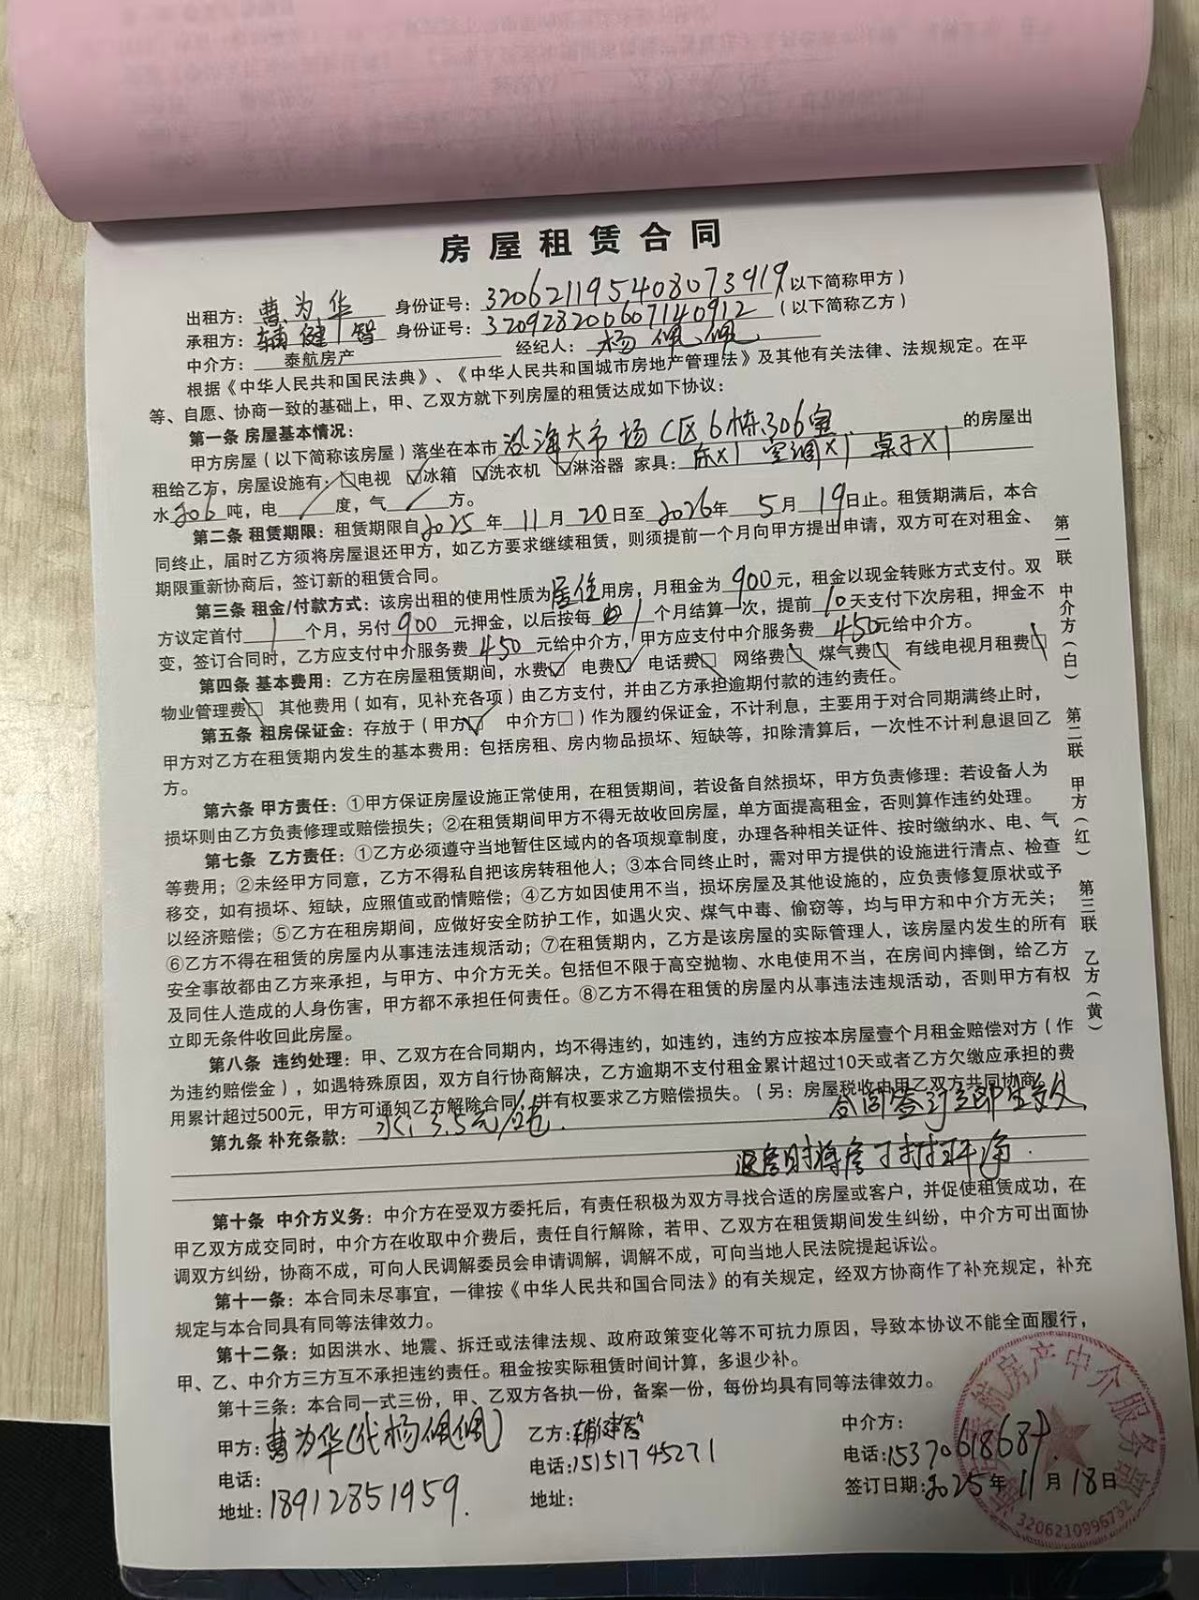 房屋租赁合同
出租方：曹为华 身份证号：320621195408073919（以下简称甲方）
承租方：辅健智 身份证号：320928200607140912（以下简称乙方）
中介方：泰航房产 经纪人：杨佩佩
根据《中华人民共和国民法典》、《中华人民共和国城市房地产管理法》及其他有关法律、法规规定。在平
等、自愿、协商一致的基础上，甲、乙双方就下列房屋的租赁达成如下协议：
第一条 房屋基本情况：
甲方房屋（以下简称该房屋）落坐在本市 海大市场C区6栋306室 的房屋出
租给乙方，房屋设施有：□电视 ☑冰箱 ☑洗衣机 ☑淋浴器 家具：床X1 空调X1 桌子X1
水206吨，电／度，气／方。
第二条 租赁期限：租赁期限自2025年11月20日至2026年5月19日止。租赁期满后，本合
同终止，届时乙方须将房屋退还甲方，如乙方要求继续租赁，则须提前一个月向甲方提出申请，双方可在对租金、
期限重新协商后，签订新的租赁合同。
第三条 租金/付款方式：该房出租的使用性质为居住用房，月租金为900元，租金以现金转账方式支付。双
方议定首付1个月，另付900元押金，以后按每1个月结算一次，提前10天支付下次房租，押金不
变，签订合同时，乙方应支付中介服务费450元给中介方，甲方应支付中介服务费450元给中介方。
第四条 基本费用：乙方在房屋租赁期间，水费☑ 电费☑ 电话费□ 网络费□ 煤气费□ 有线电视月租费□
物业管理费□ 其他费用（如有，见补充各项）由乙方支付，并由乙方承担逾期付款的违约责任。
第五条 租房保证金：存放于（甲方☑ 中介方□）作为履约保证金，不计利息，主要用于对合同期满终止时，
甲方对乙方在租赁期内发生的基本费用：包括房租、房内物品损坏、短缺等，扣除清算后，一次性不计利息退回乙
方。
第六条 甲方责任：①甲方保证房屋设施正常使用，在租赁期间，若设备自然损坏，甲方负责修理：若设备人为
损坏则由乙方负责修理或赔偿损失；②在租赁期间甲方不得无故收回房屋，单方面提高租金，否则算作违约处理。
第七条 乙方责任：①乙方必须遵守当地暂住区域内的各项规章制度，办理各种相关证件、按时缴纳水、电、气
等费用；②未经甲方同意，乙方不得私自把该房转租他人；③本合同终止时，需对甲方提供的设施进行清点、检查
移交，如有损坏、短缺，应照值或酌情赔偿；④乙方如因使用不当，损坏房屋及其他设施的，应负责修复原状或予
以经济赔偿；⑤乙方在租房期间，应做好安全防护工作，如遇火灾、煤气中毒、偷窃等，均与甲方和中介方无关；
⑥乙方不得在租赁的房屋内从事违法违规活动；⑦在租赁期内，乙方是该房屋的实际管理人，该房屋内发生的所有
安全事故都由乙方来承担，与甲方、中介方无关。包括但不限于高空抛物、水电使用不当，在房间内摔倒，给乙方
及同住人造成的人身伤害，甲方都不承担任何责任。⑧乙方不得在租赁的房屋内从事违法违规活动，否则甲方有权
立即无条件收回此房屋。
第八条 违约处理：甲、乙双方在合同期内，均不得违约，如违约，违约方应按本房屋壹个月租金赔偿对方（作
为违约赔偿金），如遇特殊原因，双方自行协商解决，乙方逾期不支付租金累计超过10天或者乙方欠缴应承担的费
用累计超过500元，甲方可通知乙方解除合同，并有权要求乙方赔偿损失。（另：房屋税收由甲乙双方共同协商
合同签订立即生效
第九条 补充条款：水：3.5元/吨．
退房时将房子打扫干净．
第十条 中介方义务：中介方在受双方委托后，有责任积极为双方寻找合适的房屋或客户，并促使租赁成功，在
甲乙双方成交同时，中介方在收取中介费后，责任自行解除，若甲、乙双方在租赁期间发生纠纷，中介方可出面协
调双方纠纷，协商不成，可向人民调解委员会申请调解，调解不成，可向当地人民法院提起诉讼。
第十一条：本合同未尽事宜，一律按《中华人民共和国合同法》的有关规定，经双方协商作了补充规定，补充
规定与本合同具有同等法律效力。
第十二条：如因洪水、地震、拆迁或法律法规、政府政策变化等不可抗力原因，导致本协议不能全面履行，
甲、乙、中介方三方互不承担违约责任。租金按实际租赁时间计算，多退少补。
第十三条：本合同一式三份，甲、乙双方各执一份，备案一份，每份均具有同等法律效力。
甲方：曹为华(代杨佩佩) 乙方：辅健智 中介方：
电话： 电话：15151745271 电话：15370618687
地址：18912851959. 地址： 签订日期：2025年11月18日
第一联 中介方（白） 第二联 甲方（红） 第三联 乙方（黄）
航房产中介服务部
3206210996732